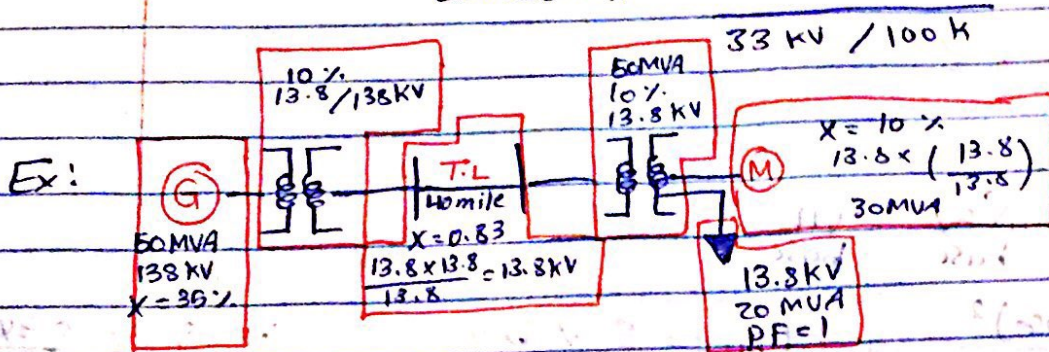 33 KV / 100 K
Ex:
G
50MVA
138 KV
X = 35 %
10 %
13.8/138KV
T.L
40mile
X=0.83
13.8 x 13.8 / 13.8 = 13.8KV
50MVA
10 %
13.8 KV
M
X = 10 %
13.8 x ( 13.8 / 13.8 )
30MVA
13.8KV
20 MVA
PF = 1